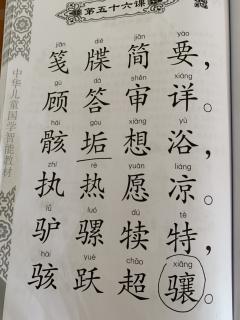 第五十六课
jiān dié
笺牒简要，
gù shěn xiáng
顾答审详。
hái gòu yù
骸垢想浴，
zhí rè yuàn liáng
执热愿凉。
lǘ luó dú tè
驴骡犊特，
hài yuè chāo xiāng
骇跃超骧。
中华儿童国学智能教材